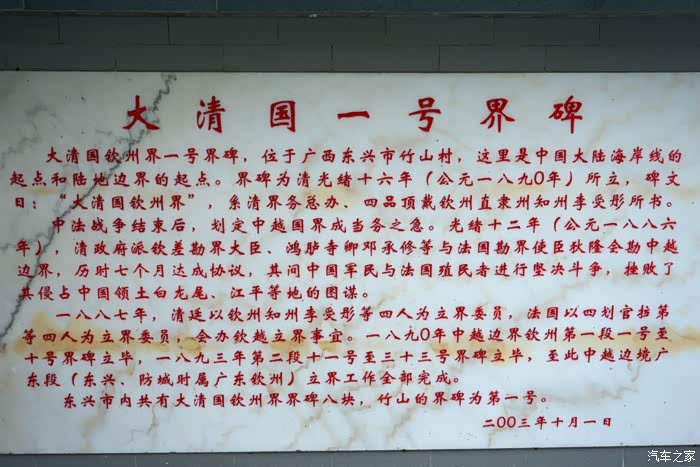 大清国一号界碑
大清国钦州界一号界碑，位于广西东兴市竹山村，这里是中国大陆海岸线的
起点和陆地边界的起点。界碑为清光绪十六年（公元一八九0年）所立，碑文
曰：“大清国钦州界”，系清界务总办、四品顶戴钦州直隶州知州李受彤所书。
中法战争结束后，划定中越国界成当务之急。光绪十二年（公元一八八六
年），清政府派钦差勘界大臣、鸿胪寺卿邓承修等与法国勘界使臣狄隆会勘中越
边界，历时七个月达成协议，其间中国军民与法国殖民者进行坚决斗争，挫败了
其侵占中国领土白龙尾、江平等地的图谋。
一八八七年，清廷以钦州知州李受彤等四人为立界委员，法国以四划官拉第
等四人为立界委员，会办钦越立界事宜。一八九0年中越边界钦州第一段一号至
十号界碑立毕，一八九三年第二段十一号至三十三号界碑立毕，至此中越边境广
东段（东兴、防城时属广东钦州）立界工作全部完成。
东兴市内共有大清国钦州界界碑八块，竹山的界碑为第一号。
二00三年十月一日
汽车之家